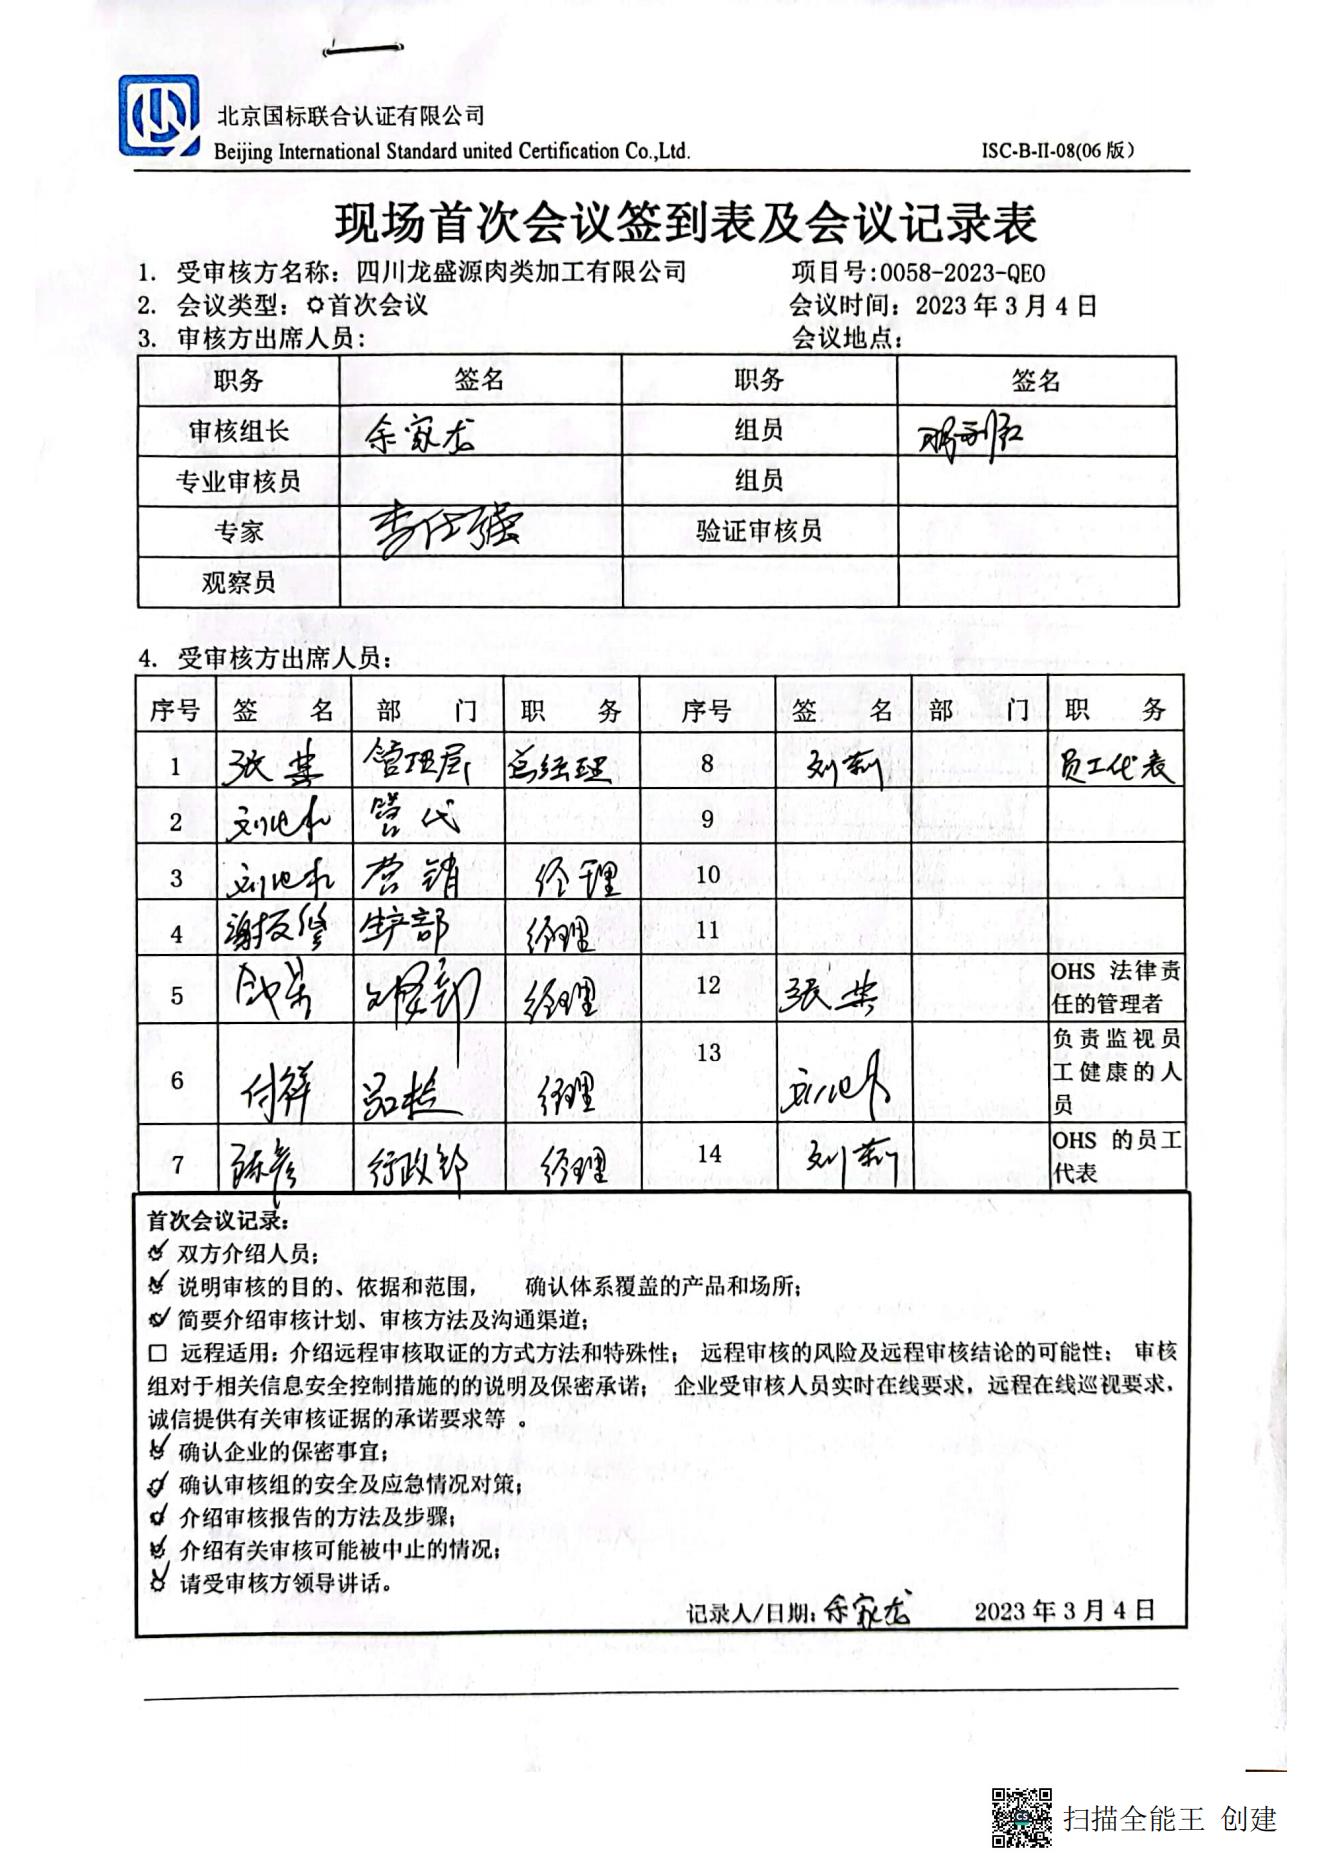 北京国标联合认证有限公司
Beijing International Standard united Certification Co.,Ltd.
ISC-B-II-08(06 版)
现场首次会议签到表及会议记录表
1. 受审核方名称：四川龙盛源肉类加工有限公司 项目号:0058-2023-QEO
2. 会议类型：首次会议 会议时间：2023 年 3 月 4 日
3. 审核方出席人员： 会议地点：
职务 签名 职务 签名
审核组长 余家龙 组员
专业审核员 组员
专家 李任强 验证审核员
观察员
4. 受审核方出席人员：
序号 签 名 部 门 职 务 序号 签 名 部 门 职 务
1 张 管理层 总经理 8 刘莉 员工代表
2 管代 9
3 营销 经理 10
4 生产部 经理 11
5 经理 12 张 OHS 法律责
任的管理者
6 付祥 品检 经理 13 负责监视员
工健康的人
员
7 行政部 经理 14 刘莉 OHS 的员工
代表
首次会议记录：
双方介绍人员；
说明审核的目的、依据和范围， 确认体系覆盖的产品和场所；
简要介绍审核计划、审核方法及沟通渠道；
□ 远程适用：介绍远程审核取证的方式方法和特殊性； 远程审核的风险及远程审核结论的可能性； 审核
组对于相关信息安全控制措施的的说明及保密承诺； 企业受审核人员实时在线要求，远程在线巡视要求，
诚信提供有关审核证据的承诺要求等 。
确认企业的保密事宜；
确认审核组的安全及应急情况对策；
介绍审核报告的方法及步骤；
介绍有关审核可能被中止的情况；
请受审核方领导讲话。
记录人/日期：余家龙 2023 年 3 月 4 日
扫描全能王 创建